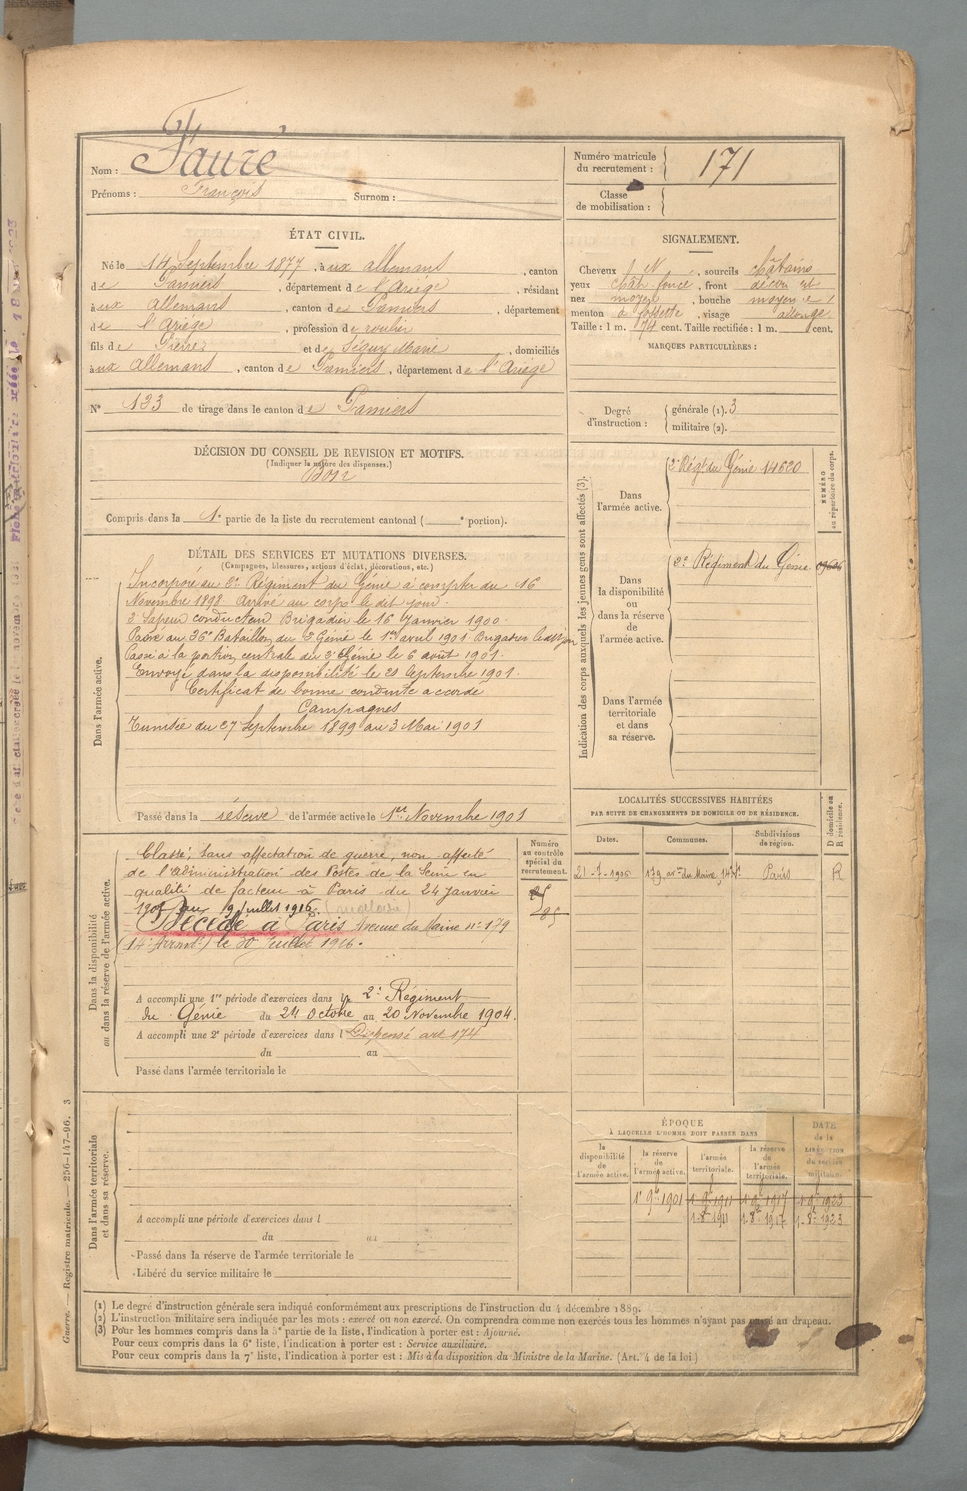 Nom : Faure
Prénoms : François Surnom :
Numéro matricule du recrutement : 171
Classe de mobilisation :
ÉTAT CIVIL.
Né le 14 Septembre 1877, à ux allemans, canton
de Pamiers, département de l'Ariège, résidant
à ux allemans, canton de Pamiers, département
de l'Ariège, profession de
fils de Pierre et de Séguy Marie, domiciliés
à ux allemans, canton de Pamiers, département de l'Ariège
N° 123 de tirage dans le canton de Pamiers
SIGNALEMENT.
Cheveux N, sourcils châtains
yeux chât foncé, front découvert
nez moyen, bouche moyenne
menton à fossette, visage allongé
Taille : 1 m. 74 cent. Taille rectifiée : 1 m. cent.
MARQUES PARTICULIÈRES :
Degré d'instruction : générale (1). 3
militaire (2).
DÉCISION DU CONSEIL DE REVISION ET MOTIFS.
(Indiquer la nature des dispenses.)
Bon
Compris dans la 1e partie de la liste du recrutement cantonal ( e portion).
DÉTAIL DES SERVICES ET MUTATIONS DIVERSES.
(Campagnes, blessures, actions d'éclat, décorations, etc.)
Dans l'armée active.
Incorporé au 2e Régiment du Génie à compter du 16
Novembre 1898 Arrivé au corps le dit jour.
2e Sapeur conducteur Brigadier le 16 Janvier 1900.
Passé au 26e Bataillon du 2e Génie le 1er avril 1901 Brigadier
Passé à la portion centrale du 2e Génie le 6 août 1901.
Envoyé dans la disponibilité le 20 Septembre 1901.
Certificat de bonne conduite accordé
Campagnes
Tunisie du 27 Septembre 1899 au 3 Mai 1901
Passé dans la réserve de l'armée active le 1er Novembre 1901
Indication des corps auxquels les jeunes gens sont affectés (3).
NUMÉRO au répertoire du corps.
Dans l'armée active. 2e Régt du Génie 14620
Dans la disponibilité ou dans la réserve de l'armée active. 2e Régiment du Génie
Dans l'armée territoriale et dans sa réserve.
Dans la disponibilité ou dans la réserve de l'armée active.
Classé, Sans affectation de guerre, non affecté
de l'administration des Postes de la Seine en
qualité de facteur à Paris du 24 Janvier
au 9 Juillet 1916
Décédé à Paris Avenue du Maine n° 179
(14e Arrond.) le 30 Juillet 1916.
A accompli une 1re période d'exercices dans le 2e Régiment
du Génie du 24 Octobre au 20 Novembre 1904.
A accompli une 2e période d'exercices dans l Dispensé art 174
du au
Passé dans l'armée territoriale le
Numéro au contrôle spécial du recrutement.
LOCALITÉS SUCCESSIVES HABITÉES
PAR SUITE DE CHANGEMENTS DE DOMICILE OU DE RÉSIDENCE.
Dates. Communes. Subdivisions de région. D domicile ou R résidence.
21-7-1906 179 av. du Maine, 14e Paris R
Dans l'armée territoriale et dans sa réserve.
A accompli une période d'exercices dans l
du au
Passé dans la réserve de l'armée territoriale le
Libéré du service militaire le
ÉPOQUE
À LAQUELLE L'HOMME DOIT PASSER DANS
la disponibilité de l'armée active.
la réserve de l'armée active.
l'armée territoriale.
la réserve de l'armée territoriale.
DATE de la LIBÉRATION du service militaire.
1er 9bre 1901 1.9bre 1911 1.9bre 1917 1.9bre 1923
1.8bre 1911 1.8bre 1917 1.8bre 1923
(1) Le degré d'instruction générale sera indiqué conformément aux prescriptions de l'instruction du 4 décembre 1889.
(2) L'instruction militaire sera indiquée par les mots : exercé ou non exercé. On comprendra comme non exercés tous les hommes n'ayant pas passé au drapeau.
(3) Pour les hommes compris dans la 5e partie de la liste, l'indication à porter est : Ajourné.
Pour ceux compris dans la 6e liste, l'indication à porter est : Service auxiliaire.
Pour ceux compris dans la 7e liste, l'indication à porter est : Mis à la disposition du Ministre de la Marine. (Art. 4 de la loi.)
Guerre. — Registre matricule. — 256-147-96. 3